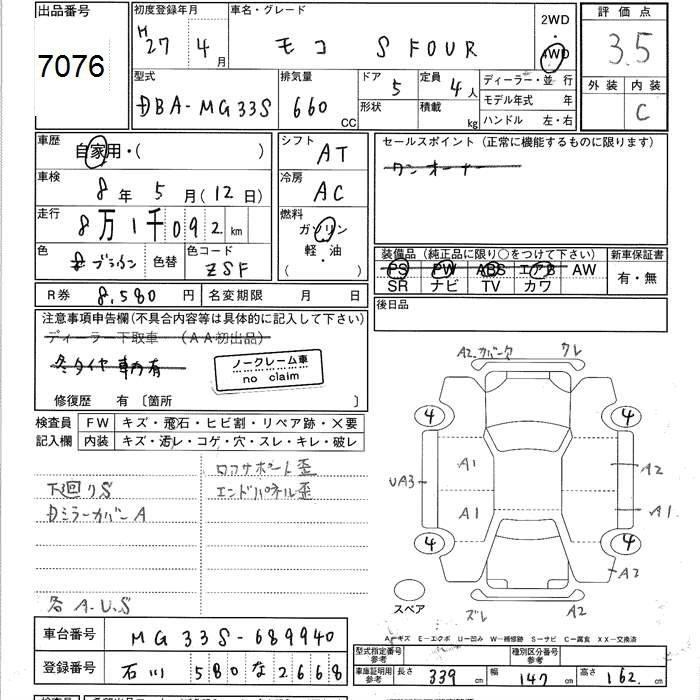 出品番号
7076
初度登録年月
H27 4月
車名・グレード
モコ S FOUR
2WD
4WD
評価点
3.5
外装 内装
C
型式
DBA-MG33S
排気量
660 CC
ドア
5
形状
定員
4人
積載 kg
ディーラー・並行
モデル年式 年
ハンドル 左・右
車歴
自家用・( )
車検
8年 5月(12日)
走行
8万1千092km
色
ブラウン
色替
色コード
ZSF
シフト
AT
冷房
AC
燃料
ガソリン
軽・油
( )
セールスポイント(正常に機能するものに限ります)
ワンオーナー
装備品(純正品に限り○をつけて下さい)
PS PW ABS エアB AW
SR ナビ TV カワ
新車保証書
有・無
後日品
R券 8,580円
名変期限 月 日
注意事項申告欄(不具合内容等は具体的に記入して下さい)
ディーラー下取車 (AA初出品)
冬タイヤ 有
ノークレーム車
no claim
修復歴 有〔箇所 〕
検査員
記入欄
FW キズ・飛石・ヒビ割・リペア跡・×要
内装 キズ・汚レ・コゲ・穴・スレ・キレ・破レ
ロアサポート歪
下回りS
エンドパネル歪
Dミラーカバー A
各A.U.S
A2 カバー欠
ズレ
4
4
A1
A2
UA3
A1
A1
4
4
A2
スペア
ズレ
A2
A-キズ E-エクボ U-凹み W-補修跡 S-サビ C-腐食 XX-交換済
車台番号
MG33S-689940
登録番号
石川580な2668
型式指定番号
参考
種別区分番号
参考
車庫証明用
参考
長さ 339cm
幅 147cm
高さ 162cm